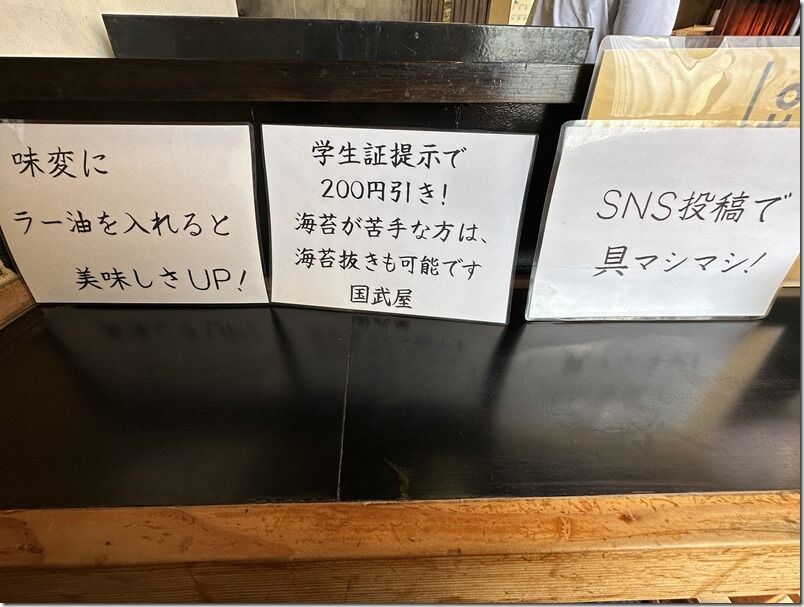 味変に
ラー油を入れると
美味しさUP!
学生証提示で
200円引き!
海苔が苦手な方は、
海苔抜きも可能です
国武屋
SNS投稿で
具マシマシ!